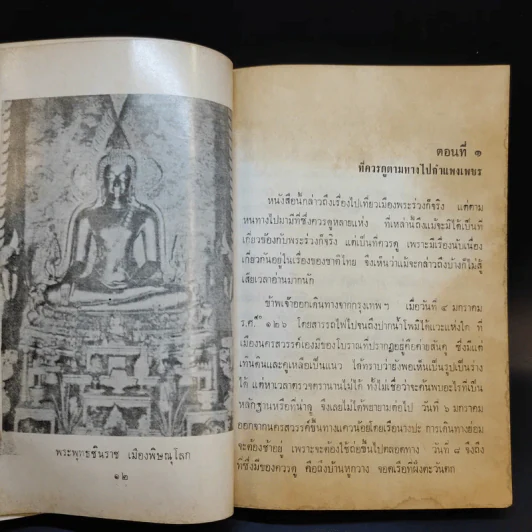 พระพุทธชินราช เมืองพิษณุโลก
๑๒
ตอนที่ ๑
ที่ควรดูตามทางไปกำแพงเพชร
หนังสือนี้กล่าวถึงเรื่องไปเที่ยวเมืองพระร่วงก็จริง แต่ตาม
หนทางไปมามีที่ซึ่งควรดูหลายแห่ง ที่เหล่านี้ถึงแม้จะมิได้เป็นที่
เกี่ยวข้องกับพระร่วงก็จริง แต่เป็นที่ควรดู เพราะมีเรื่องนับเนื่อง
เกี่ยวกันอยู่ในเรื่องของชาติไทย จึงเห็นว่าแม้จะกล่าวถึงบ้างก็ไม่สู้
เสียเวลาอ่านมากนัก
ข้าพเจ้าออกเดินทางจากกรุงเทพฯ เมื่อวันที่ ๔ มกราคม
ร.ศ. ๑๒๖ โดยสารรถไฟไปจนถึงปากน้ำโพมิได้แวะแห่งใด ที่
เมืองนครสวรรค์เองมีของโบราณที่ปรากฏอยู่คือค่ายสันคู ซึ่งมีแต่
เทินดินและคูเหลือเป็นแนว ได้ทราบว่ายังพอเห็นเป็นรูปเป็นร่าง
ได้ แต่หาเวลาตรวจตรานานไม่ได้ ทั้งไม่เชื่อว่าจะค้นพบอะไรที่เป็น
หลักฐานหรือที่น่าดู จึงเลยไม่ได้พยายามต่อไป วันที่ ๖ มกราคม
ออกจากนครสวรรค์ขึ้นทางแควน้อยโดยเรือ การเดินทางย่อม
จะต้องช้าอยู่ เพราะจะต้องใช้ถ่อขึ้นไปตลอดทาง วันที่ ๘ จึงถึง
ที่ซึ่งมีของควรดู คือถึงบ้านหูกวาง จอดเรือที่ฝั่งตะวันตก